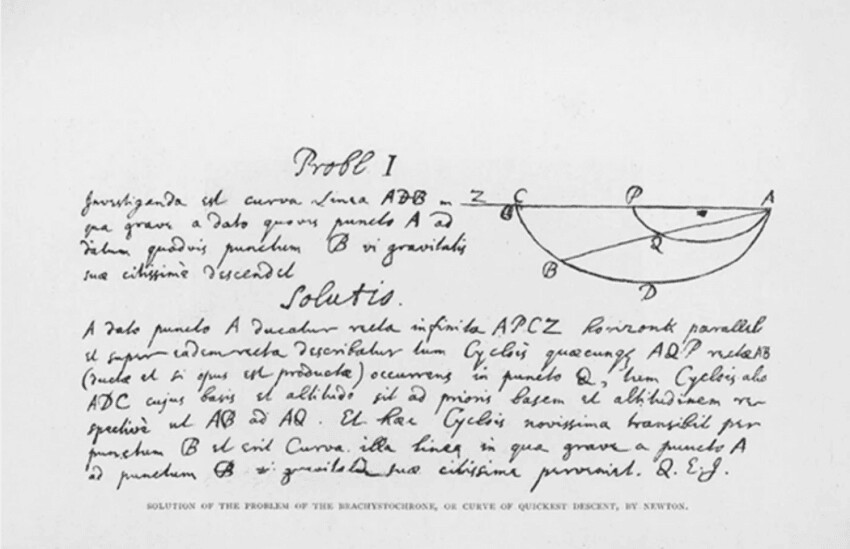 Probl I
Investiganda est curva Linea ADB in
qua grave a dato quovis puncto A ad
datum quodvis punctum B vi gravitatis
suæ citissimè descendet
Z C P A
B Q
B
D
Solutio.
A dato puncto A ducatur recta infinita APCZ horizonti parallel
et super eadem recta describatur tum Cyclois quæcunq AQP rectæ AB
(ductæ et si opus est productæ) occurrens in puncto Q, tum Cyclois alia
ADC cujus basis et altitudo sit ad prioris basem et altitudinem re-
spectivè ut AB ad AQ. Et hæc Cyclois novissima transibit per
punctum B et erit Curva illa linea in qua grave a puncto A
ad punctum B vi gravitatis suæ citissime perveniet. Q.E.J.
SOLUTION OF THE PROBLEM OF THE BRACHYSTOCHRONE, OR CURVE OF QUICKEST DESCENT, BY NEWTON.